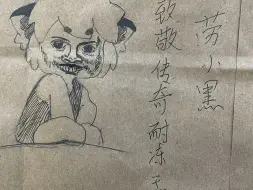 劳小黑
致敬传奇耐冻